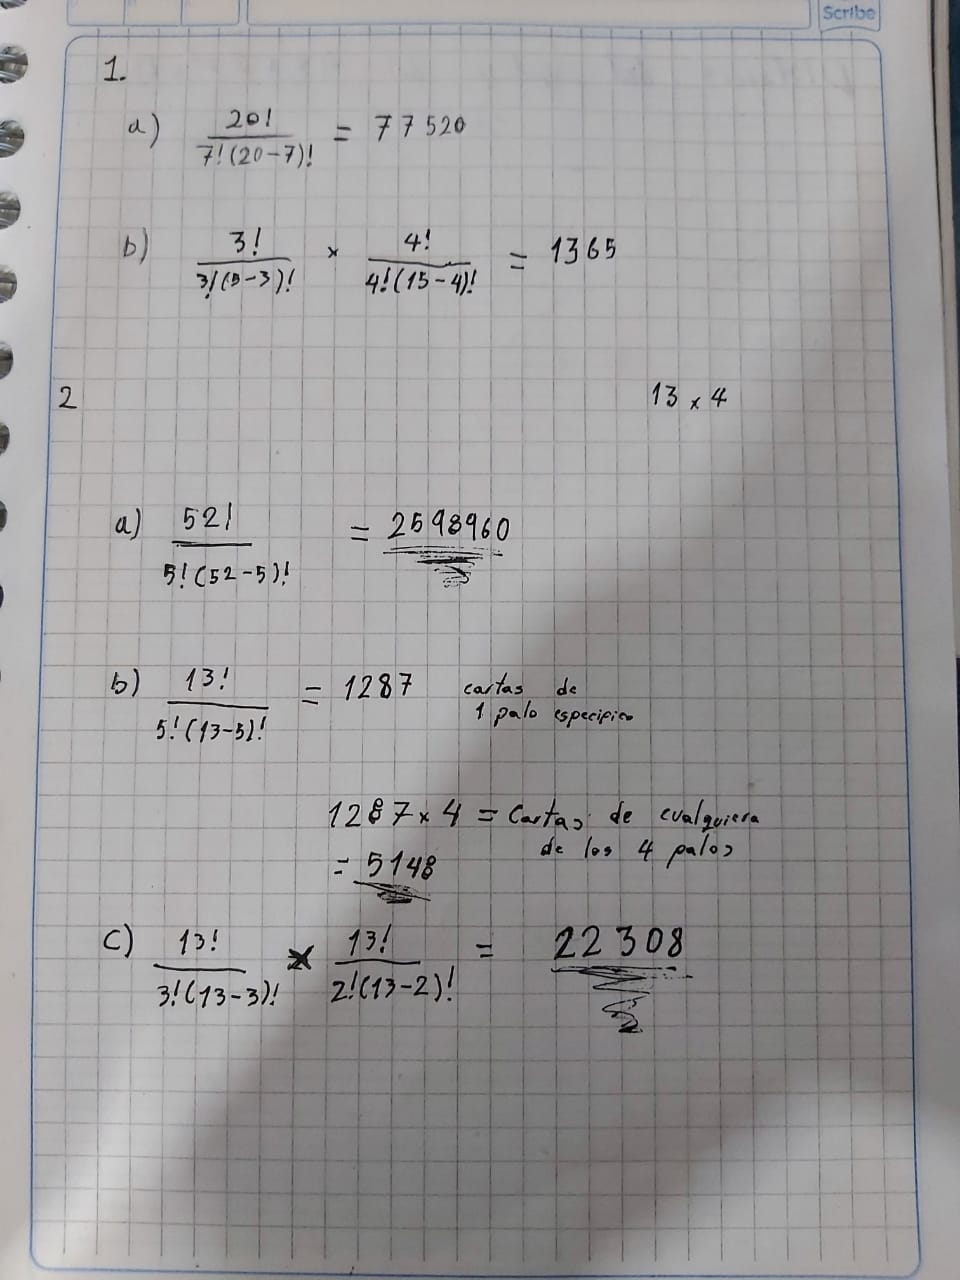 Scribe
1.
a) 20! / 7!(20-7)! = 77520
b) 3! / 3!(5-3)! x 4! / 4!(15-4)! = 1365
2 13 x 4
a) 52! / 5!(52-5)! = 2598960
b) 13! / 5!(13-5)! = 1287 cartas de
1 palo especifico
1287 x 4 = Cartas de cualquiera
de los 4 palos
= 5148
c) 13! / 3!(13-3)! x 13! / 2!(13-2)! = 22308